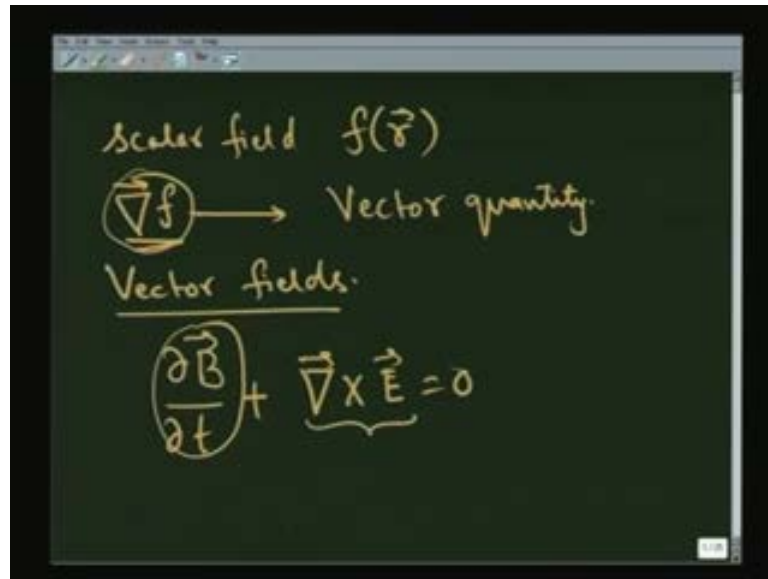 Scalar field f(r⃗)
∇⃗f ⟶ Vector quantity.
Vector fields.
∂B⃗/∂t + ∇⃗ × E⃗ = 0